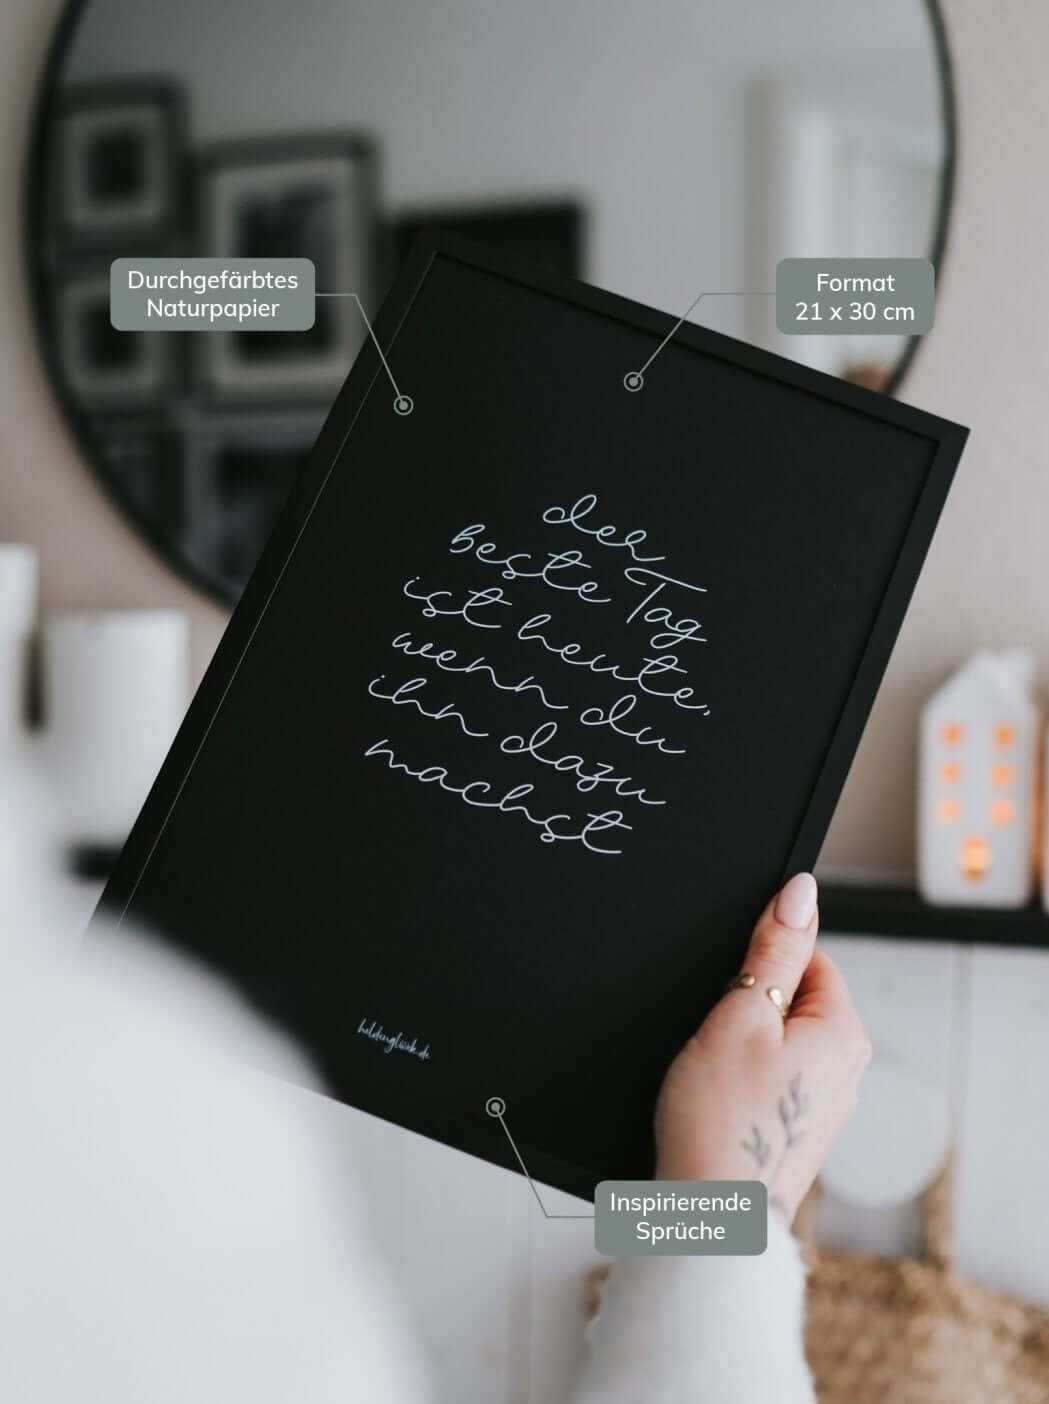 Durchgefärbtes
Naturpapier
Format
21 x 30 cm
der
beste Tag
ist heute,
wenn du
ihn dazu
machst
heldenglück.de
Inspirierende
Sprüche